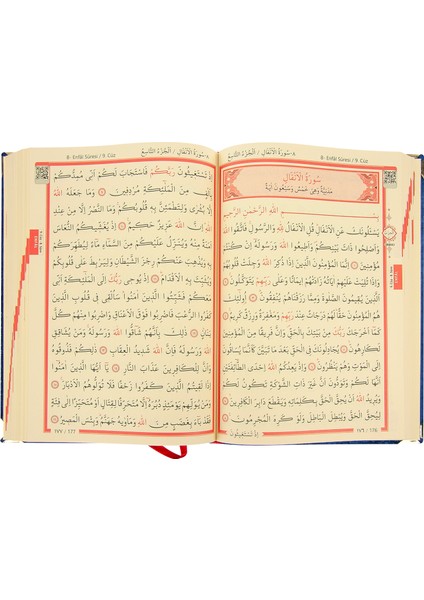 ٨-سُورَةُ الْاَنْفَالِ / اَلْجُزْءُ التَّاسِعُ 8- Enfâl Sûresi / 9. Cüz
سُورَةُ الْاَنْفَالِ
مَدَنِيَّةٌ وَهِيَ خَمْسٌ وَسَبْعُونَ اٰيَةً
بِسْمِ اللّٰهِ الرَّحْمٰنِ الرَّحِيمِ
يَسْـَٔلُونَكَ عَنِ الْاَنْفَالِ قُلِ الْاَنْفَالُ لِلّٰهِ وَالرَّسُولِ فَاتَّقُوا اللّٰهَ
وَاَصْلِحُوا ذَاتَ بَيْنِكُمْ وَاَطِيعُوا اللّٰهَ وَرَسُولَهُ اِنْ كُنْتُمْ
مُؤْمِنِينَ ۝ اِنَّمَا الْمُؤْمِنُونَ الَّذِينَ اِذَا ذُكِرَ اللّٰهُ وَجِلَتْ قُلُوبُهُمْ
وَاِذَا تُلِيَتْ عَلَيْهِمْ اٰيَاتُهُ زَادَتْهُمْ اِيمَانًا وَعَلٰى رَبِّهِمْ يَتَوَكَّلُونَ ۝
اَلَّذِينَ يُقِيمُونَ الصَّلٰوةَ وَمِمَّا رَزَقْنَاهُمْ يُنْفِقُونَ ۝ اُو۬لٰٓئِكَ هُمُ
الْمُؤْمِنُونَ حَقًّا لَهُمْ دَرَجَاتٌ عِنْدَ رَبِّهِمْ وَمَغْفِرَةٌ وَرِزْقٌ كَرِيمٌ ۝
كَمَا اَخْرَجَكَ رَبُّكَ مِنْ بَيْتِكَ بِالْحَقِّ وَاِنَّ فَرِيقًا مِنَ الْمُؤْمِنِينَ
لَكَارِهُونَ ۝ يُجَادِلُونَكَ فِي الْحَقِّ بَعْدَ مَا تَبَيَّنَ كَاَنَّمَا يُسَاقُونَ
اِلَى الْمَوْتِ وَهُمْ يَنْظُرُونَ ۝ وَاِذْ يَعِدُكُمُ اللّٰهُ اِحْدَى الطَّائِفَتَيْنِ
اَنَّهَا لَكُمْ وَتَوَدُّونَ اَنَّ غَيْرَ ذَاتِ الشَّوْكَةِ تَكُونُ لَكُمْ
وَيُرِيدُ اللّٰهُ اَنْ يُحِقَّ الْحَقَّ بِكَلِمَاتِهِ وَيَقْطَعَ دَابِرَ الْكَافِرِينَ ۝
لِيُحِقَّ الْحَقَّ وَيُبْطِلَ الْبَاطِلَ وَلَوْ كَرِهَ الْمُجْرِمُونَ ۝
اِذْ تَسْتَغِيثُونَ
١٧٦ - 176
8- Enfâl Sûresi / 9. Cüz ٨-سُورَةُ الْاَنْفَالِ / اَلْجُزْءُ التَّاسِعُ
اِذْ تَسْتَغِيثُونَ رَبَّكُمْ فَاسْتَجَابَ لَكُمْ اَنِّي مُمِدُّكُمْ
بِاَلْفٍ مِنَ الْمَلٰٓئِكَةِ مُرْدِفِينَ ۝ وَمَا جَعَلَهُ اللّٰهُ
اِلَّا بُشْرٰى وَلِتَطْمَئِنَّ بِهِ قُلُوبُكُمْ وَمَا النَّصْرُ اِلَّا مِنْ عِنْدِ
اللّٰهِ اِنَّ اللّٰهَ عَزِيزٌ حَكِيمٌ ۝ اِذْ يُغَشِّيكُمُ النُّعَاسَ
اَمَنَةً مِنْهُ وَيُنَزِّلُ عَلَيْكُمْ مِنَ السَّمَاءِ مَاءً لِيُطَهِّرَكُمْ
بِهِ وَيُذْهِبَ عَنْكُمْ رِجْزَ الشَّيْطَانِ وَلِيَرْبِطَ عَلٰى قُلُوبِكُمْ
وَيُثَبِّتَ بِهِ الْاَقْدَامَ ۝ اِذْ يُوحِي رَبُّكَ اِلَى الْمَلٰٓئِكَةِ اَنِّي
مَعَكُمْ فَثَبِّتُوا الَّذِينَ اٰمَنُوا سَاُلْقِي فِي قُلُوبِ الَّذِينَ
كَفَرُوا الرُّعْبَ فَاضْرِبُوا فَوْقَ الْاَعْنَاقِ وَاضْرِبُوا مِنْهُمْ كُلَّ
بَنَانٍ ۝ ذٰلِكَ بِاَنَّهُمْ شَاقُّوا اللّٰهَ وَرَسُولَهُ وَمَنْ يُشَاقِقِ
اللّٰهَ وَرَسُولَهُ فَاِنَّ اللّٰهَ شَدِيدُ الْعِقَابِ ۝ ذٰلِكُمْ فَذُوقُوهُ
وَاَنَّ لِلْكَافِرِينَ عَذَابَ النَّارِ ۝ يَا اَيُّهَا الَّذِينَ اٰمَنُوا
اِذَا لَقِيتُمُ الَّذِينَ كَفَرُوا زَحْفًا فَلَا تُوَلُّوهُمُ الْاَدْبَارَ ۝
وَمَنْ يُوَلِّهِمْ يَوْمَئِذٍ دُبُرَهُ اِلَّا مُتَحَرِّفًا لِقِتَالٍ اَوْ مُتَحَيِّزًا اِلٰى فِئَةٍ
فَقَدْ بَاءَ بِغَضَبٍ مِنَ اللّٰهِ وَمَأْوٰيهُ جَهَنَّمُ وَبِئْسَ الْمَصِيرُ ۝
١٧٧ - 177